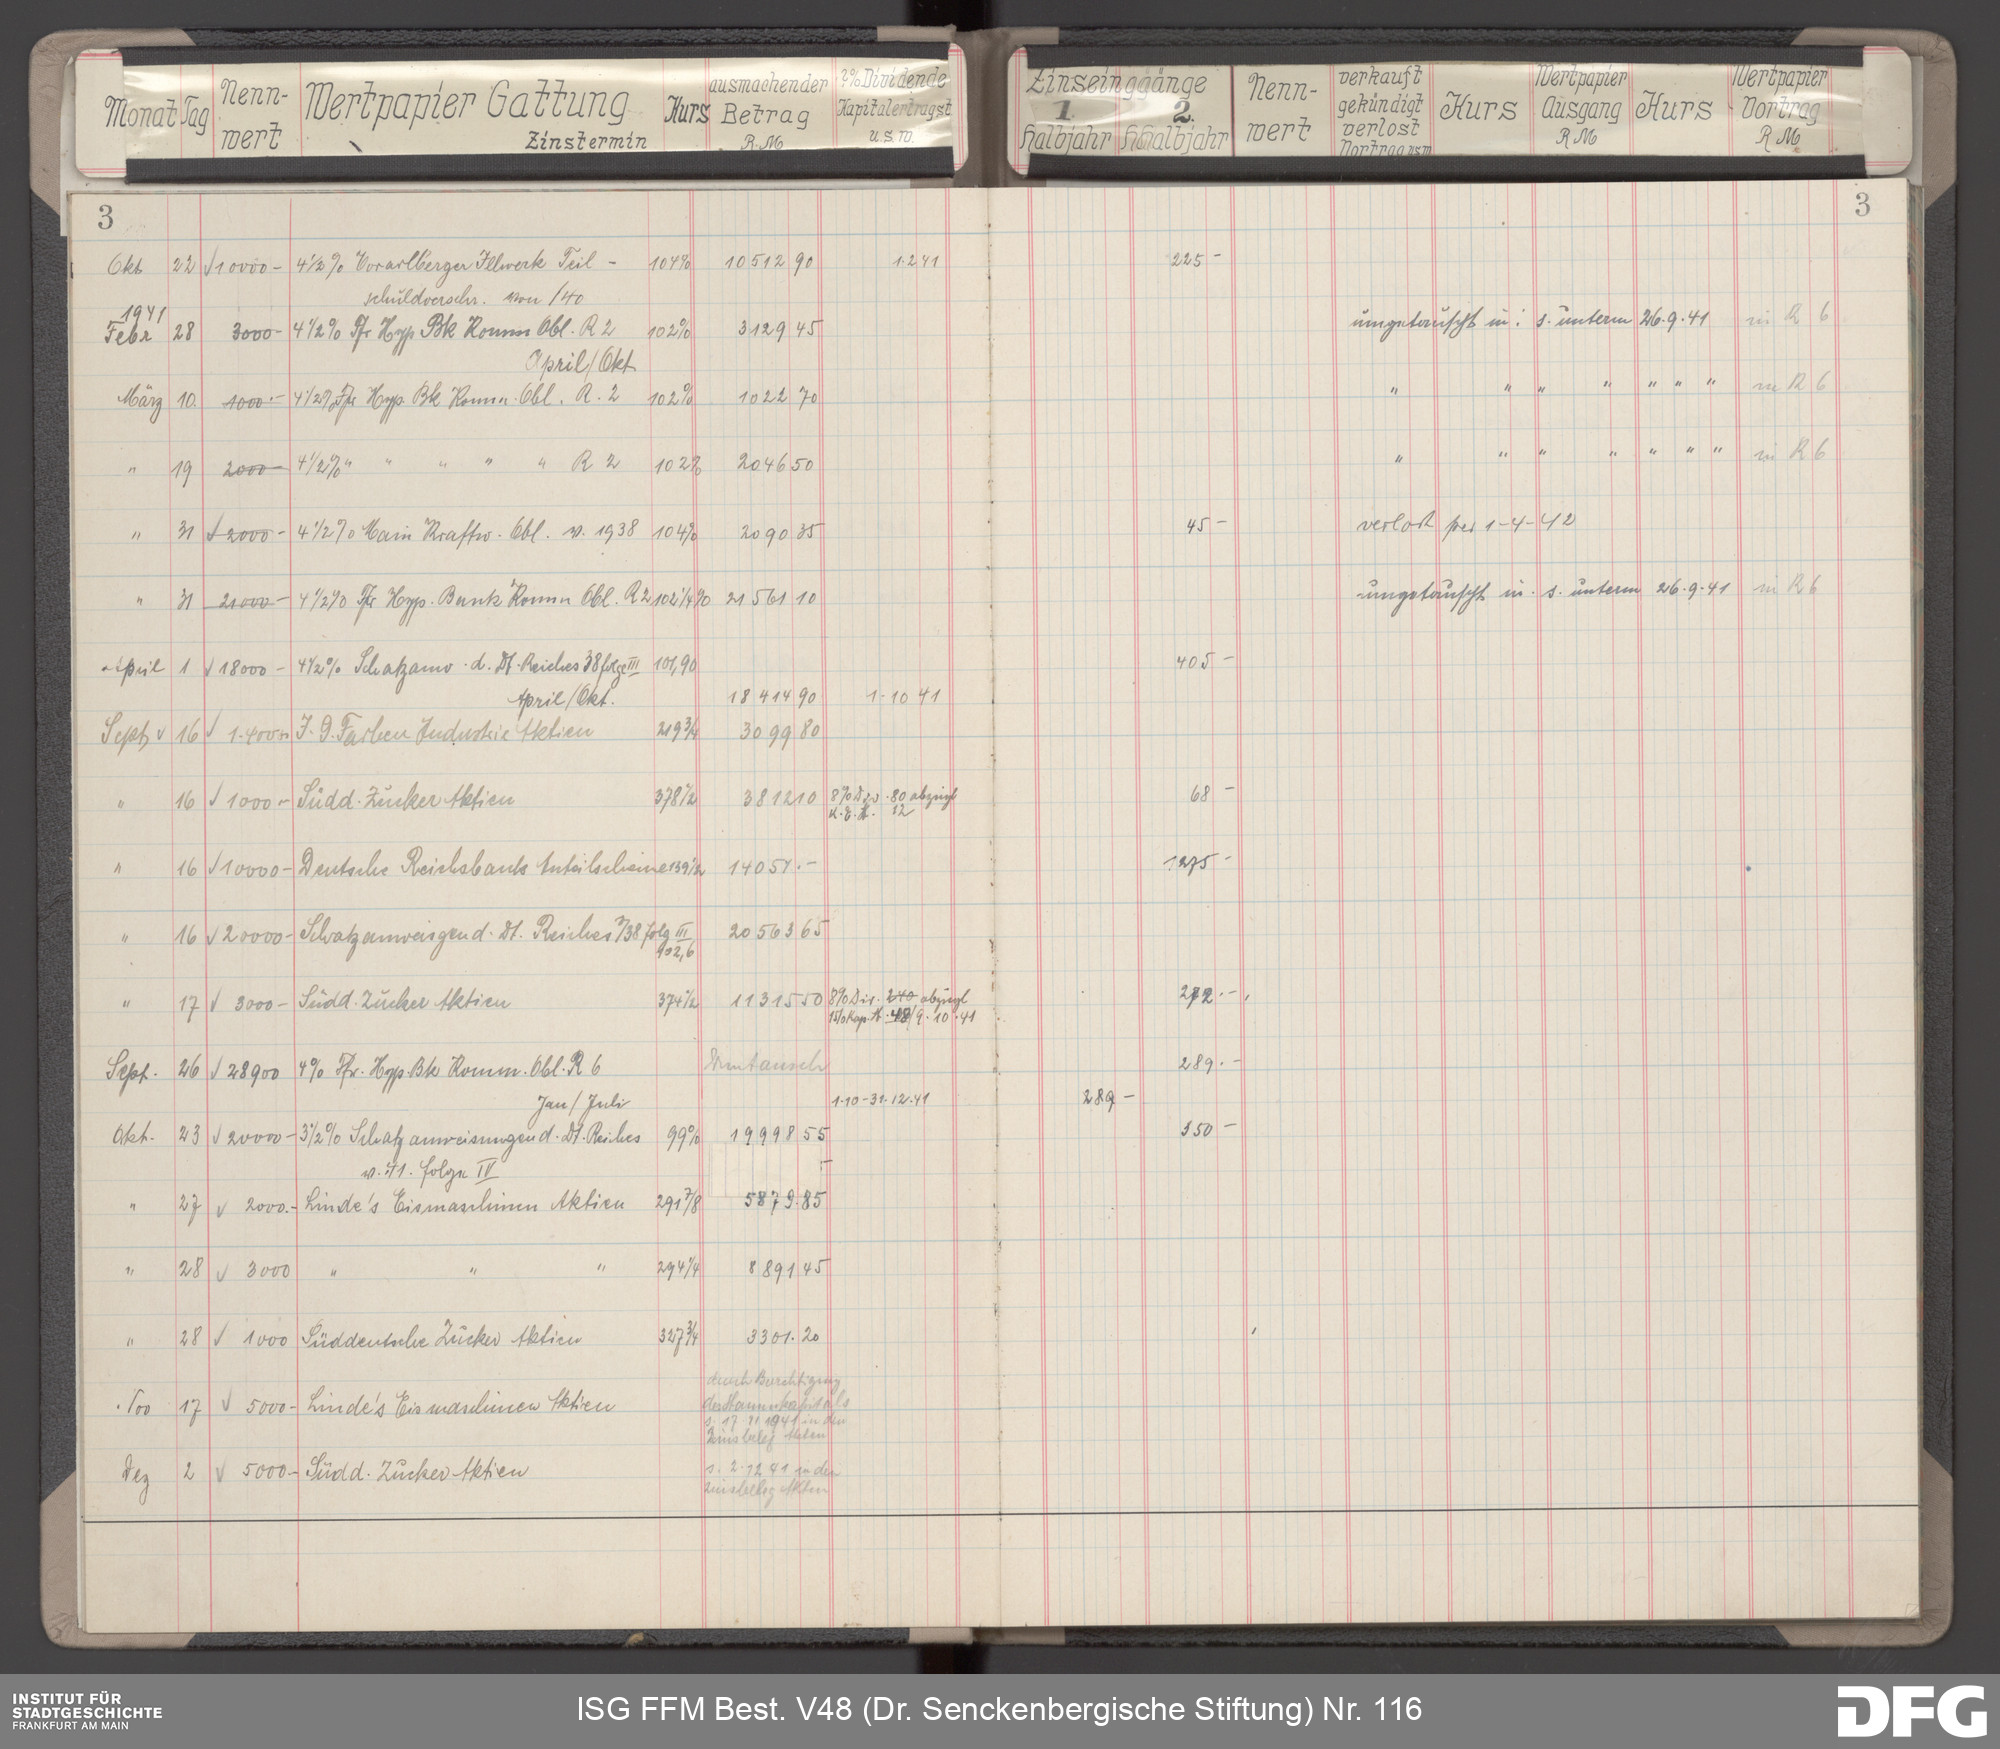 Monat Tag Nenn-wert Wertpapier Gattung Zinstermin Kurs ausmachender Betrag R.M 2% Dividende Kapitalertragst u.s.w.
Zinseinggänge 1. Halbjahr 2. Halbjahr Nenn-wert verkauft gekündigt verlost Vortrag usw Kurs Wertpapier Ausgang RM Kurs Wertpapier Vortrag RM
3 3
Okt 22 √10000- 4½% Vorarlberger Illwerk Teil- 104% 10512 90 1.2 41 225-
schuldverschr. von /40
1941
Febr 28 3000- 4½% Ffr Hyp Bk Komm Obl. R 2 102% 3129 45 umgetauscht in: s. unterm 26.9.41 in R 6
April/Okt
März 10. 1000.- 4½% Ffr Hyp. Bk Komm. Obl. R. 2 102% 1022 70 " " " " " " " in R 6
" 19 2000- 4½% " " " " " R 2 102% 2046 50 " " " " " " " in R 6
" 31 √2000- 4½% Main Kraftw. Obl. v. 1938 104% 2090 35 45- verlost per 1-4-42
" 31 21000- 4½% Ffr Hyp. Bank Komm Obl. R2 102¼% 21561 10 umgetauscht in. s. unterm 26.9.41 in R 6
April 1 √18000- 4½% Schatzanw. d. Dt. Reiches 38 folge III 101,90 405-
April/Okt. 18414 90 1.10 41
Sept √ 16 √ 1.400.- I.G. Farben Industrie Aktien 219¾ 3099 80
" 16 √1000.- Südd. Zucker Aktien 378½ 3812 10 8% Div. 80 abzügl 68-
K.E.St. 12
" 16 √10000- Deutsche Reichsbank Anteilscheine 139½ 14051.- 1275-
" 16 √20000- Schatzanweisgen d. Dt. Reiches 38 folg III 20563 65
102,6
" 17 √ 3000- Südd. Zucker Aktien 374½ 11315 50 8% Div. 240 abzügl 272.-
15% Kap. St. 48/9.10.41
Sept. 26 √28900 4% Ffr. Hyp. Bk Komm. Obl. R 6 Umtausch 289.-
Jan/Juli 1.10-31.12.41 289-
Okt. 23 √20000- 3½% Schatzanweisungen d. Dt. Reiches 99% 19998 55 350-
v. 41. folge IV
" 27 √ 2000.- Linde's Eismaschinen Aktien 291⅞ 5879.85
" 28 √ 3000 " " " 294¼ 8891 45
" 28 √ 1000 Süddeutsche Zucker Aktien 327¾ 3301.20
Nov 17 √ 5000- Linde's Eismaschinen Aktien durch Berichtigung
des Stammkapitals
s. 17.11.1941 in den
Zinsbeleg Akten
Dez 2 √ 5000- Südd. Zucker Aktien s. 2.12 41 in den
Zinsbeleg Akten
INSTITUT FÜR
STADTGESCHICHTE
FRANKFURT AM MAIN
ISG FFM Best. V48 (Dr. Senckenbergische Stiftung) Nr. 116
DFG